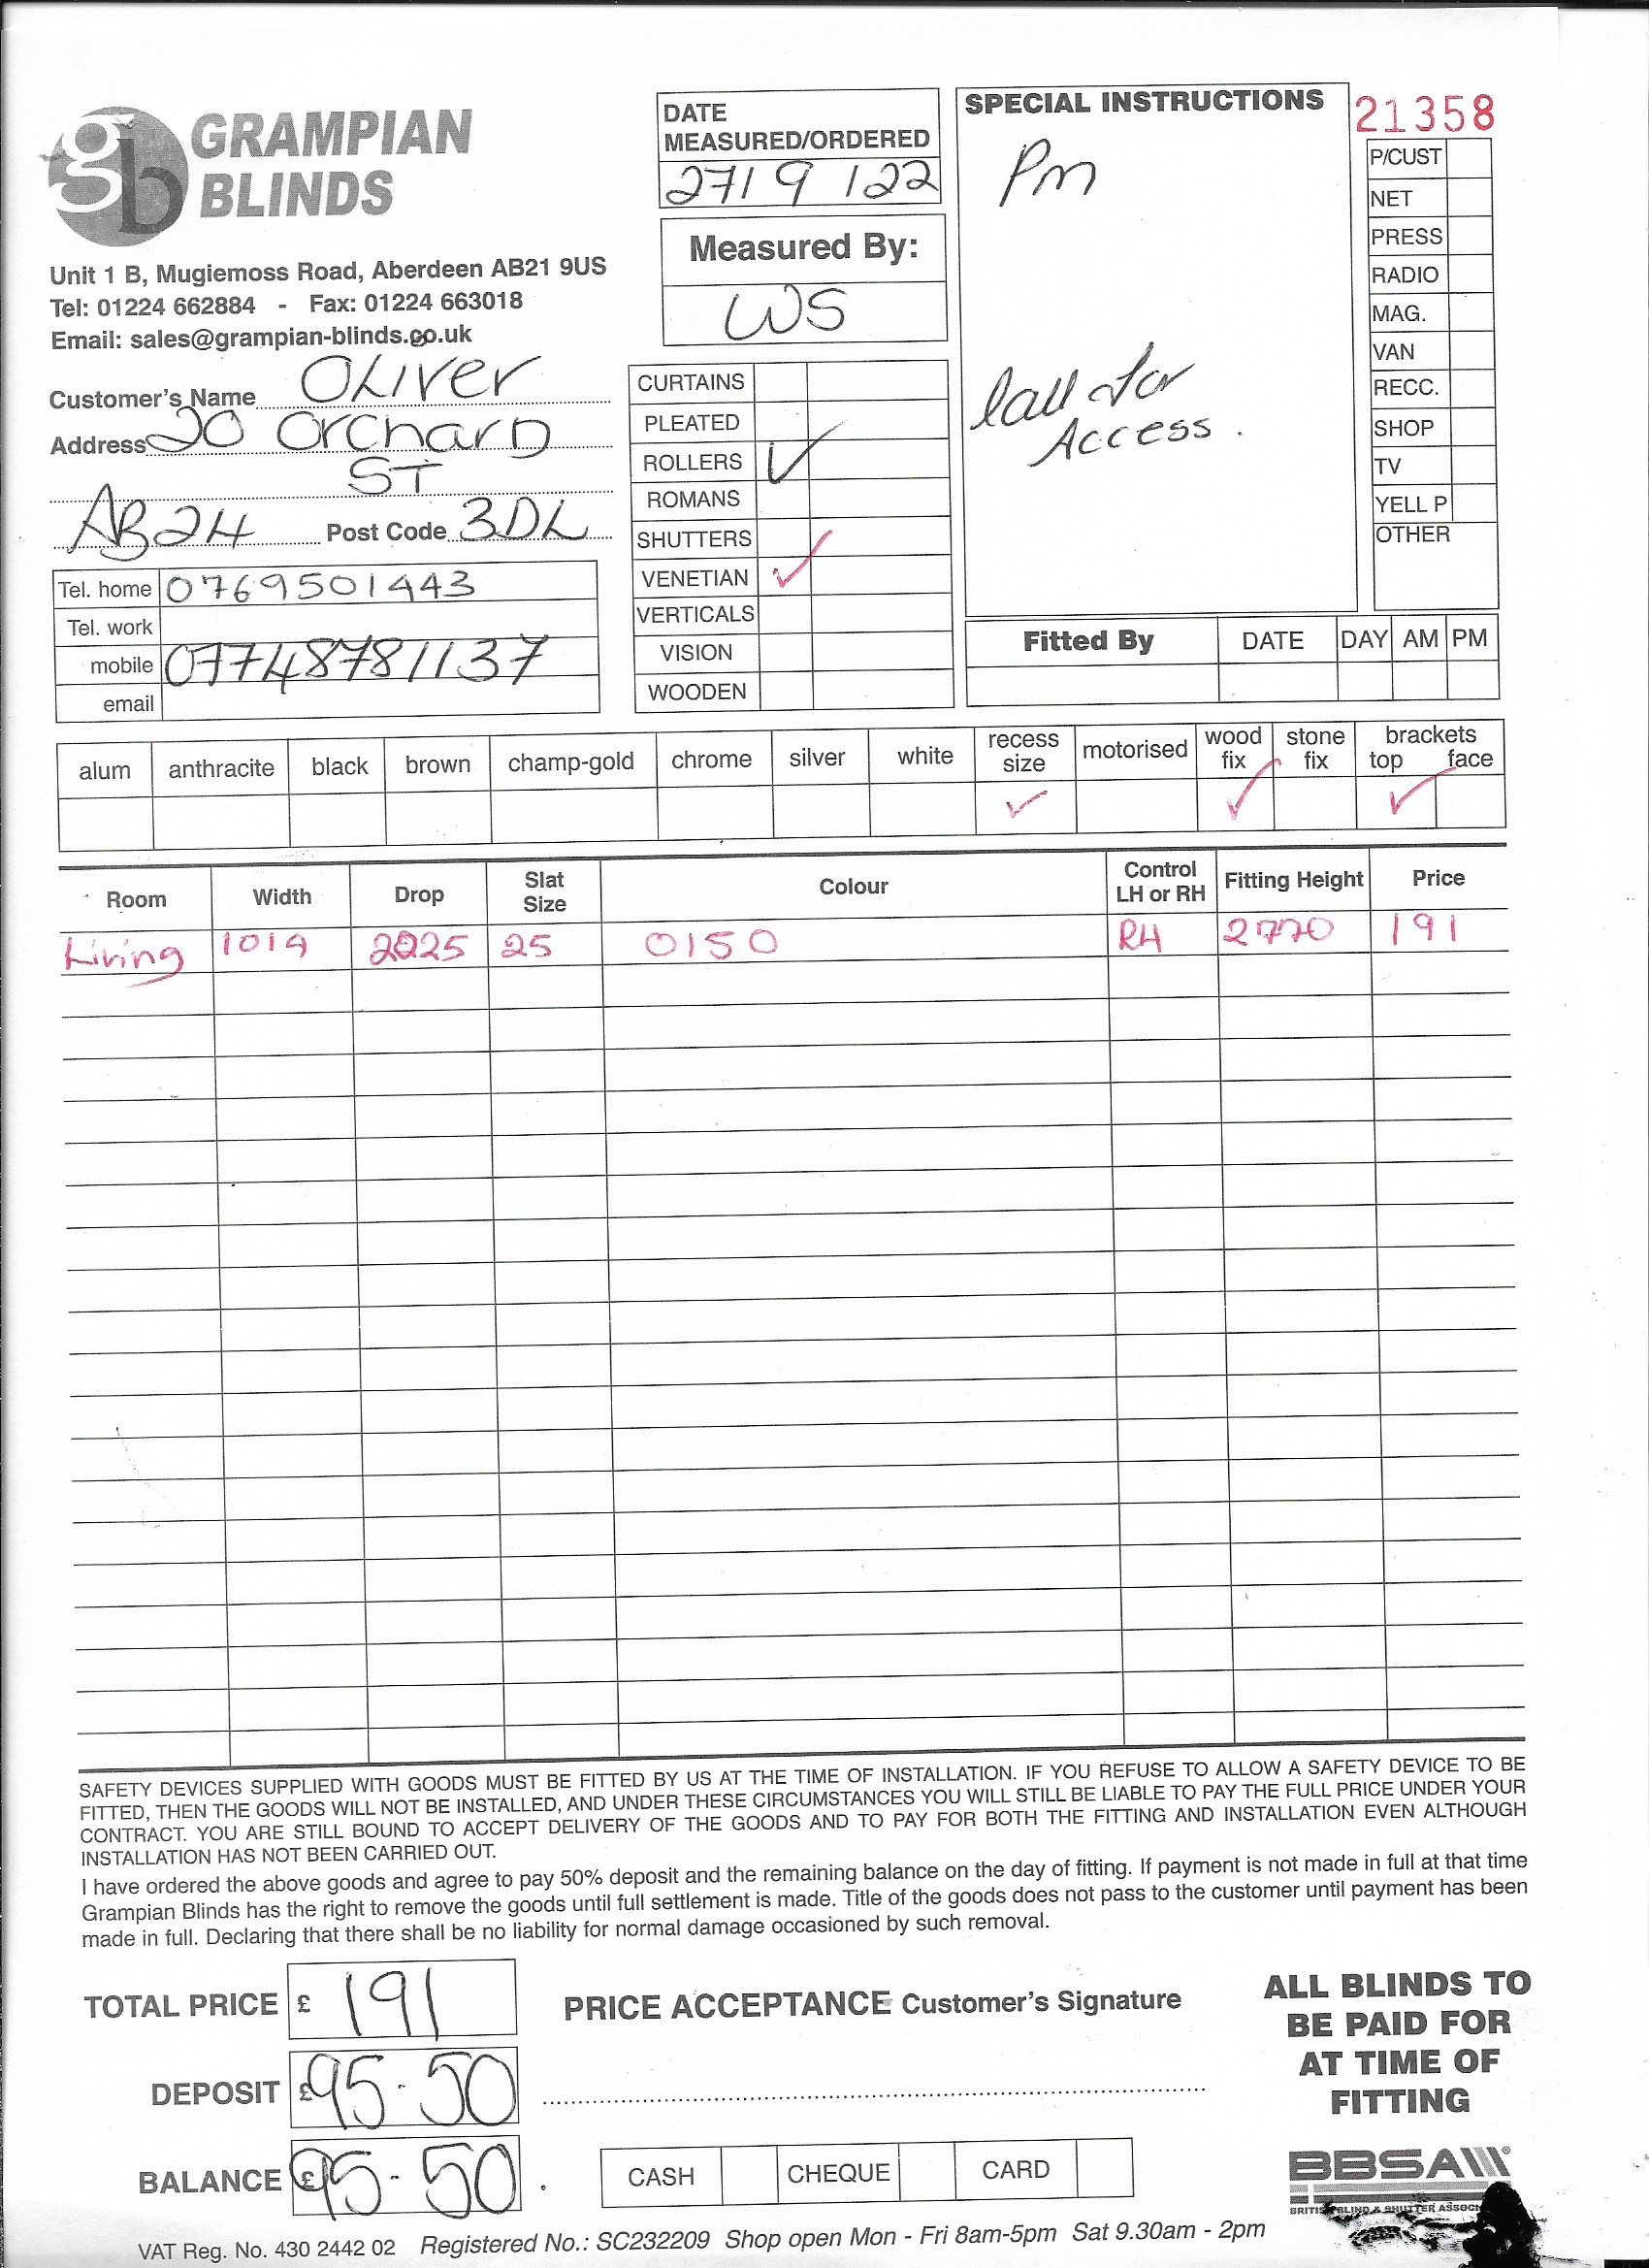 GRAMPIAN
BLINDS
Unit 1 B, Mugiemoss Road, Aberdeen AB21 9US
Tel: 01224 662884 - Fax: 01224 663018
Email: sales@grampian-blinds.co.uk
Customer's Name OLiver
Address 20 Orchard
ST
AB24 Post Code 3DL
Tel. home 0769501443
Tel. work
mobile 07748781137
email
DATE
MEASURED/ORDERED
27/9/22
Measured By:
WS
CURTAINS
PLEATED
ROLLERS ✓
ROMANS
SHUTTERS
VENETIAN ✓
VERTICALS
VISION
WOODEN
SPECIAL INSTRUCTIONS
Pm
Call for
Access.
21358
P/CUST
NET
PRESS
RADIO
MAG.
VAN
RECC.
SHOP
TV
YELL P
OTHER
Fitted By DATE DAY AM PM
alum anthracite black brown champ-gold chrome silver white recess size motorised wood fix stone fix brackets top face
✓ ✓ ✓
Room Width Drop Slat Size Colour Control LH or RH Fitting Height Price
Living 1019 2225 25 0150 RH 2770 191
SAFETY DEVICES SUPPLIED WITH GOODS MUST BE FITTED BY US AT THE TIME OF INSTALLATION. IF YOU REFUSE TO ALLOW A SAFETY DEVICE TO BE
FITTED, THEN THE GOODS WILL NOT BE INSTALLED, AND UNDER THESE CIRCUMSTANCES YOU WILL STILL BE LIABLE TO PAY THE FULL PRICE UNDER YOUR
CONTRACT. YOU ARE STILL BOUND TO ACCEPT DELIVERY OF THE GOODS AND TO PAY FOR BOTH THE FITTING AND INSTALLATION EVEN ALTHOUGH
INSTALLATION HAS NOT BEEN CARRIED OUT.
I have ordered the above goods and agree to pay 50% deposit and the remaining balance on the day of fitting. If payment is not made in full at that time
Grampian Blinds has the right to remove the goods until full settlement is made. Title of the goods does not pass to the customer until payment has been
made in full. Declaring that there shall be no liability for normal damage occasioned by such removal.
TOTAL PRICE £ 191
DEPOSIT £ 95-50
BALANCE £ 95-50.
PRICE ACCEPTANCE Customer's Signature
CASH CHEQUE CARD
ALL BLINDS TO
BE PAID FOR
AT TIME OF
FITTING
BBSA
BRITISH BLIND & SHUTTER ASSOC
VAT Reg. No. 430 2442 02 Registered No.: SC232209 Shop open Mon - Fri 8am-5pm Sat 9.30am - 2pm